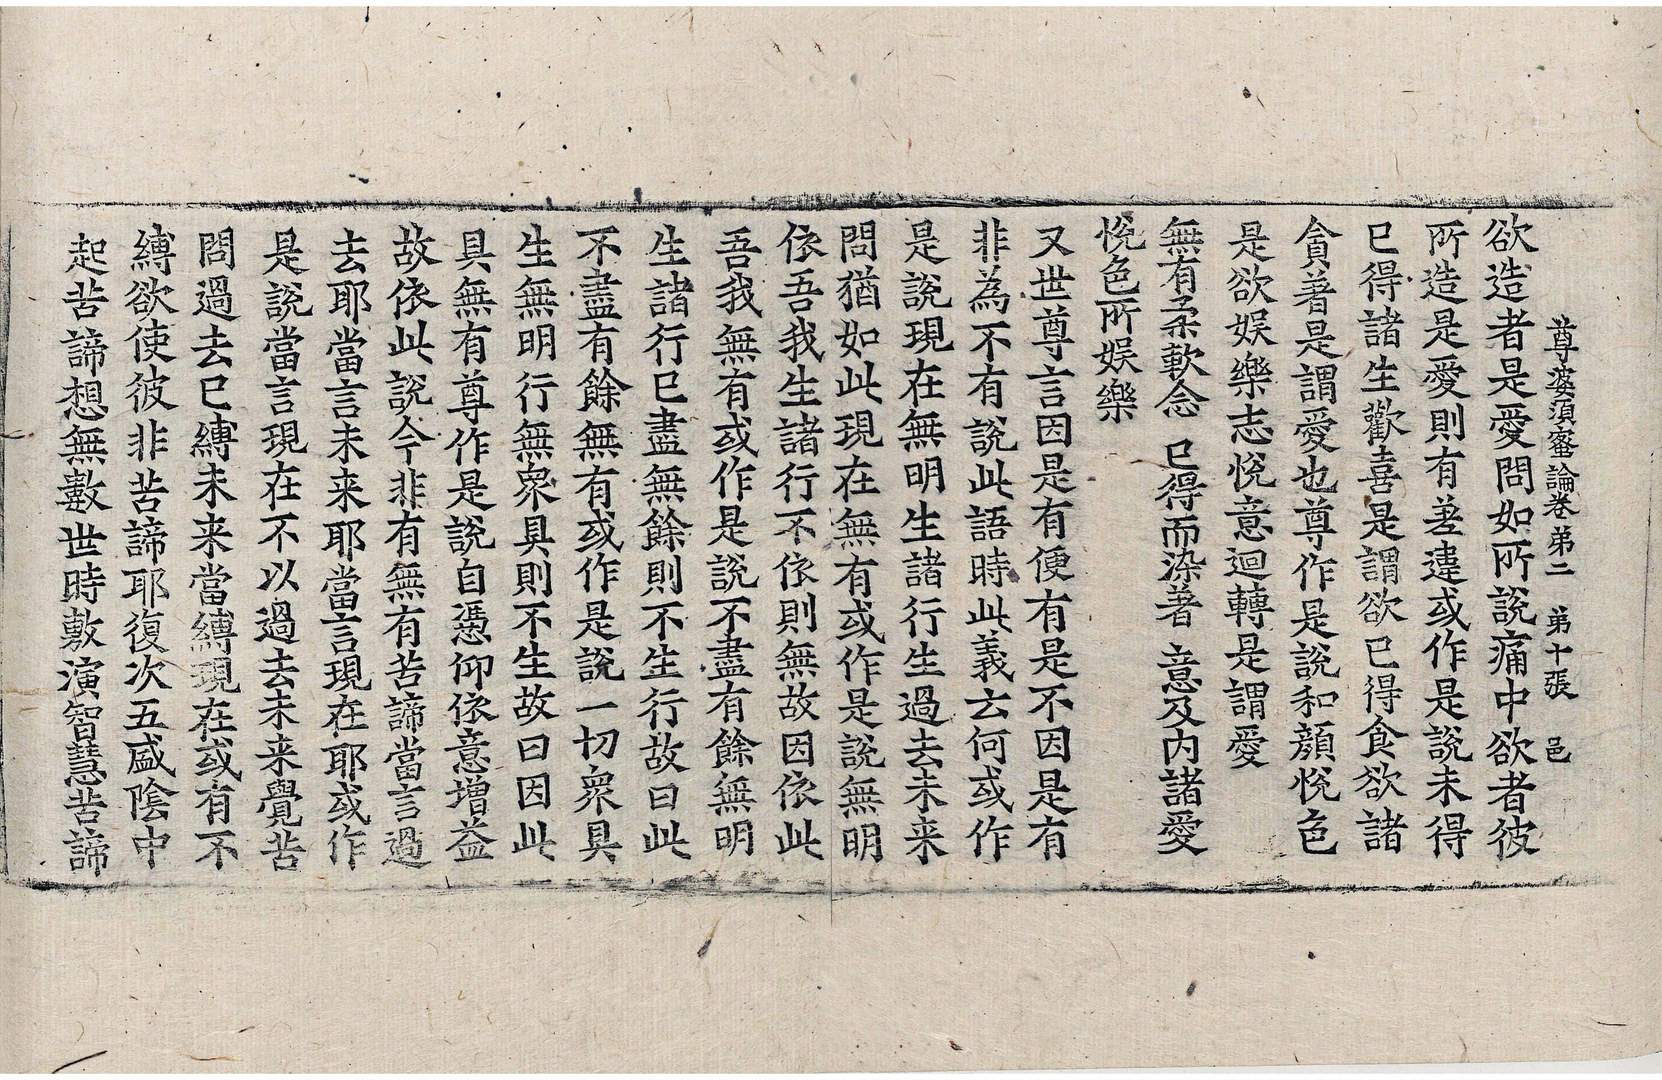 尊婆須蜜論卷弟二　弟十張　邑
欲造者是愛問如所說痛中欲者彼
所造是愛則有差違或作是說未得
已得諸生歡喜是謂欲已得食欲諸
貪著是謂愛也尊作是說和顔悅色
是欲娛樂志悅意迴轉是謂愛
無有柔軟念　已得而染著　意及內諸愛
悅色所娛樂
又世尊言因是有便有是不因是有
非為不有說此語時此義云何或作
是說現在無明生諸行生過去未来
問猶如此現在無有或作是說無明
依吾我生諸行不依則無故因依此
吾我無有或作是說不盡有餘無明
生諸行已盡無餘則不生行故曰此
不盡有餘無有或作是說一切衆具
生無明行無衆具則不生故曰因此
具無有尊作是說自憑仰依意增益
故依此說今非有無有苦諦當言過
去耶當言未来耶當言現在耶或作
是說當言現在不以過去未来覺苦
問過去已縛未来當縛現在或有不
縛欲使彼非苦諦耶復次五盛陰中
起苦諦想無數世時敷演智慧苦諦